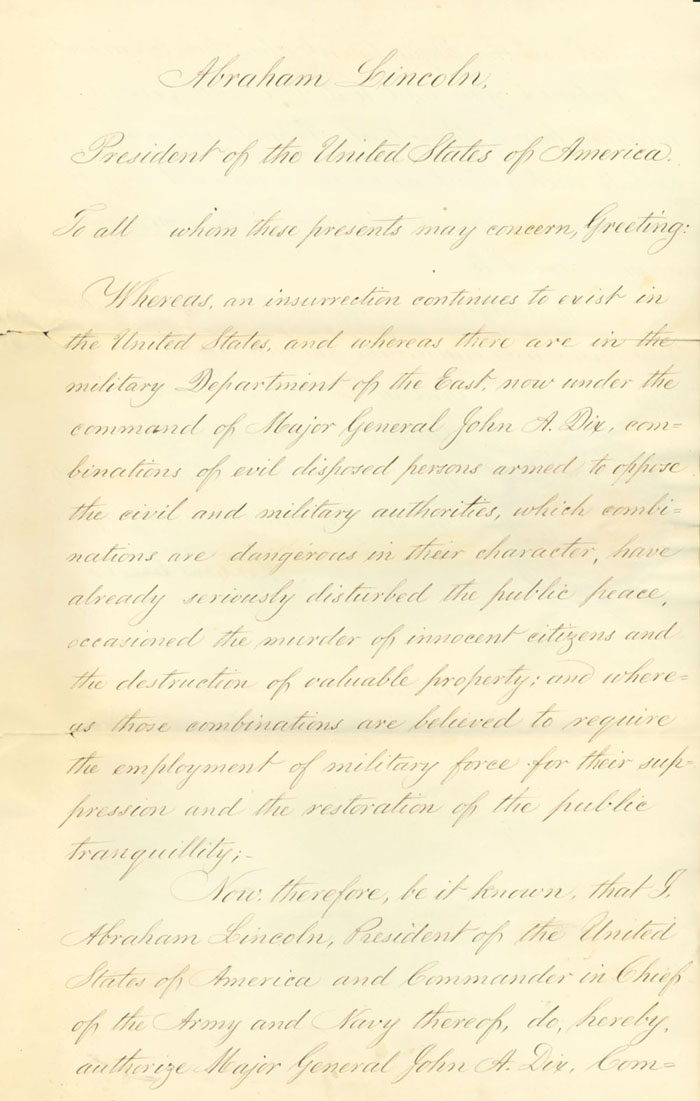 Abraham Lincoln,
President of the United States of America.
To all whom these presents may concern, Greeting:
Whereas, an insurrection continues to exist in
the United States, and whereas there are in the
military Department of the East, now under the
command of Major General John A. Dix, com=
binations of evil disposed persons armed to oppose
the civil and military authorities, which combi=
nations are dangerous in their character, have
already seriously disturbed the public peace,
occasioned the murder of innocent citizens and
the destruction of valuable property; and where=
as those combinations are believed to require
the employment of military force for their sup=
pression and the restoration of the public
tranquillity;-
Now, therefore, be it known, that I,
Abraham Lincoln, President of the United
States of America and Commander in Chief
of the Army and Navy thereof, do, hereby,
authorize Major General John A. Dix, Com=